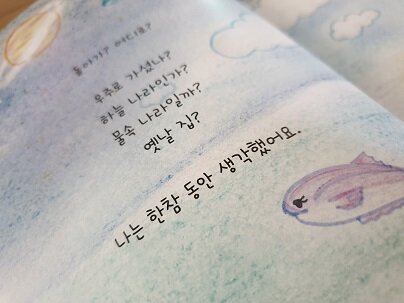 돌아가? 어디로?
우주로 가셨나?
하늘 나라인가?
물속 나라일까?
옛날 집?
나는 한참 동안 생각했어요.